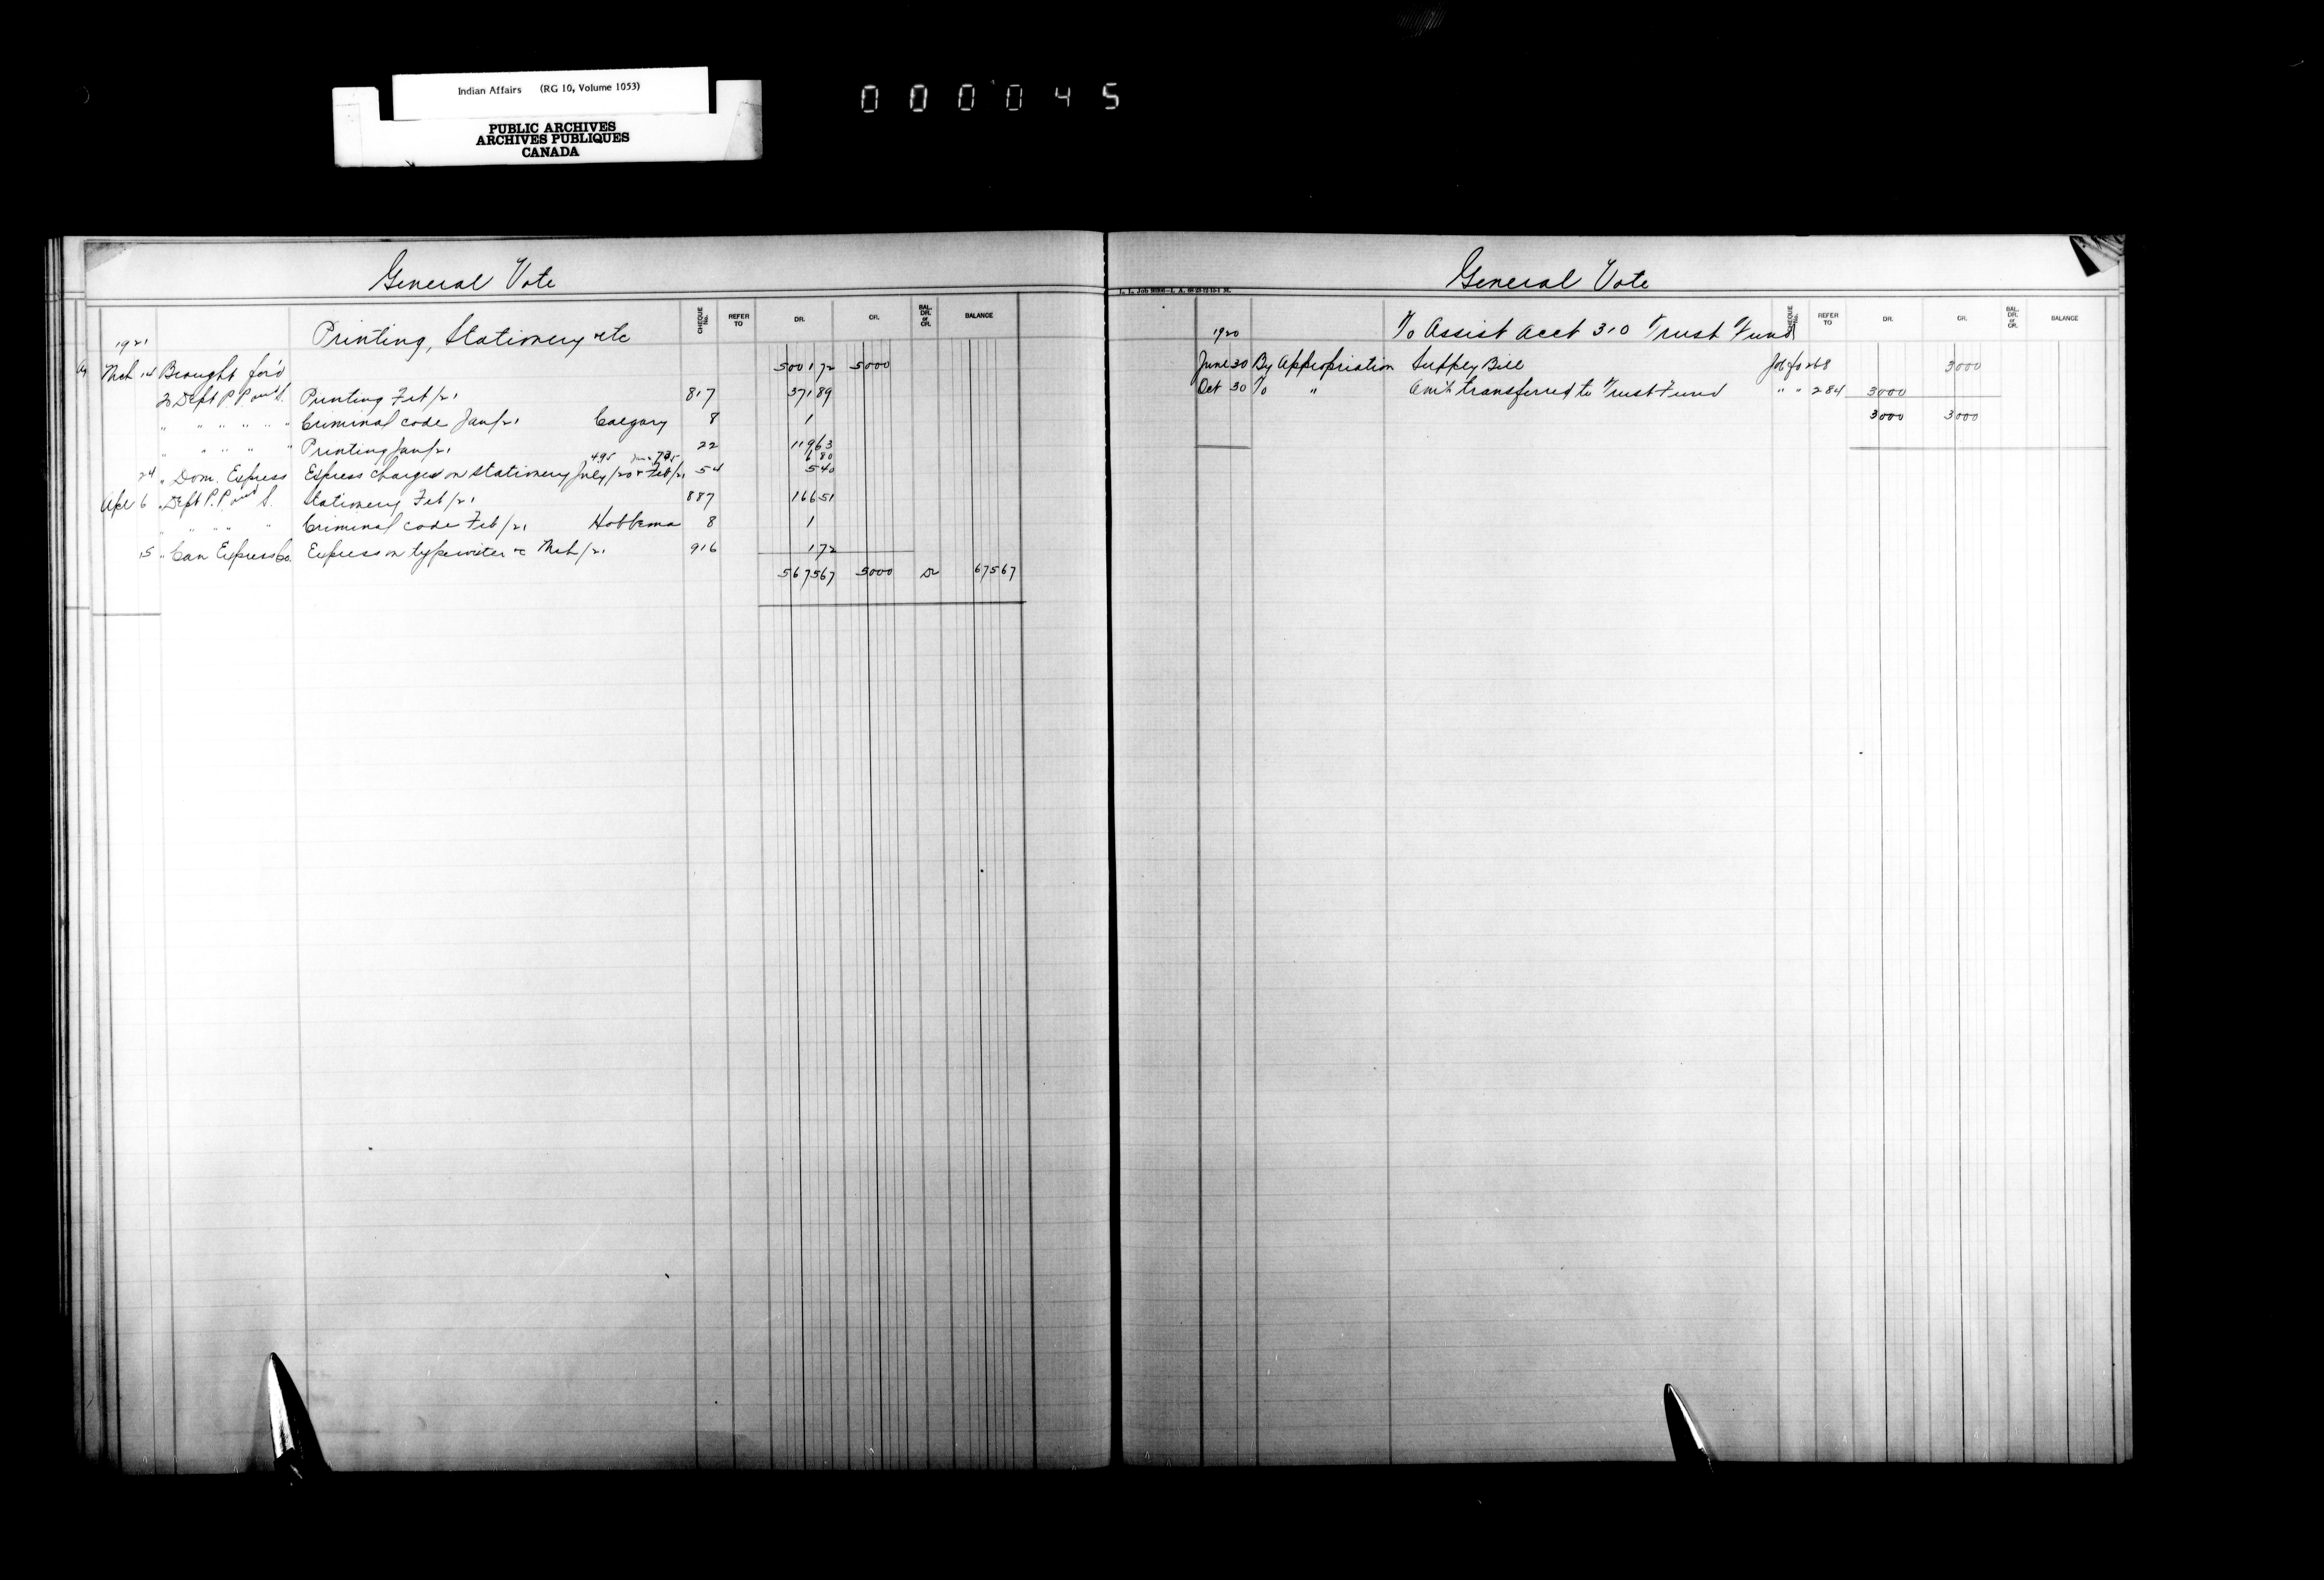 Indian Affairs (RG 10, Volume 1053)
PUBLIC ARCHIVES
ARCHIVES PUBLIQUES
CANADA
000045
General Vote
CHEQUE No. REFER TO DR. CR. BAL. DR. or CR. BALANCE
1921 Printing, Stationery etc
Mch 14 Brought for'd 5001 72 5000
20 Dept P P and S. Printing Feb/21 817 371 89
" " " " " " Criminal code Jan/21 Calgary 8 1
" " " " " Printing Jan/21 22 119 63
4.95 .75 6 80
24 " Dom. Express Express charges on stationery July/20 & Feb/21 54 5 40
Apl 6 " Dept P. P and S. Stationery Feb/21 887 166 51
" " " " Criminal code Feb/21 Hobbema 8 1
15 " Can Express Co. Express on typewriter &c Mch/21 916 1 72
5675 67 5000 Dr 675 67
General Vote
CHEQUE No. REFER TO DR. CR. BAL. DR. or CR. BALANCE
1920 To Assist Acct 310 Trust Fund
June 30 By Appropriation Supply Bill fo 268 3000
Oct 30 To " Am't transferred to Trust Fund " " 284 3000
3000 3000